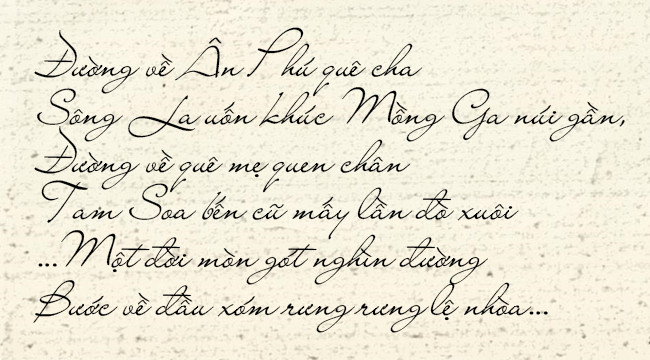 Đường về Ân Phú quê cha
Sông La uốn khúc Mồng Ga núi gần,
Đường về quê mẹ quen chân
Tam Soa bến cũ mấy lần đò xuôi
...Một đời mòn gót nghìn đường
Bước về đầu xóm rưng rưng lệ nhòa...